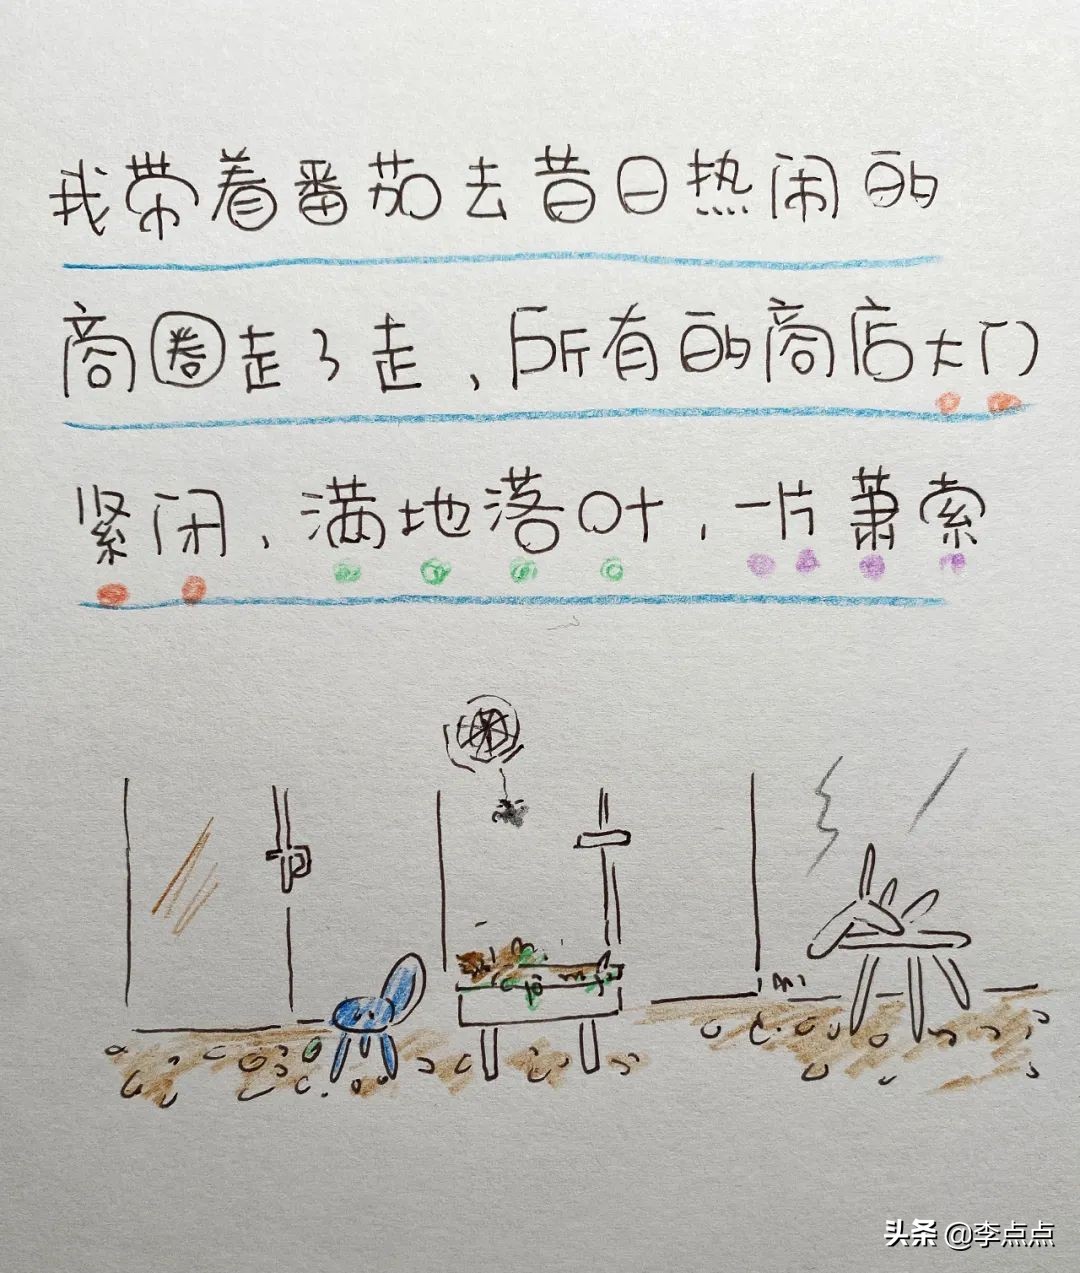 我带着番茄去昔日热闹的
商圈走了走、所有的商店大门
紧闭、满地落叶、一片萧索
头条 @李点点